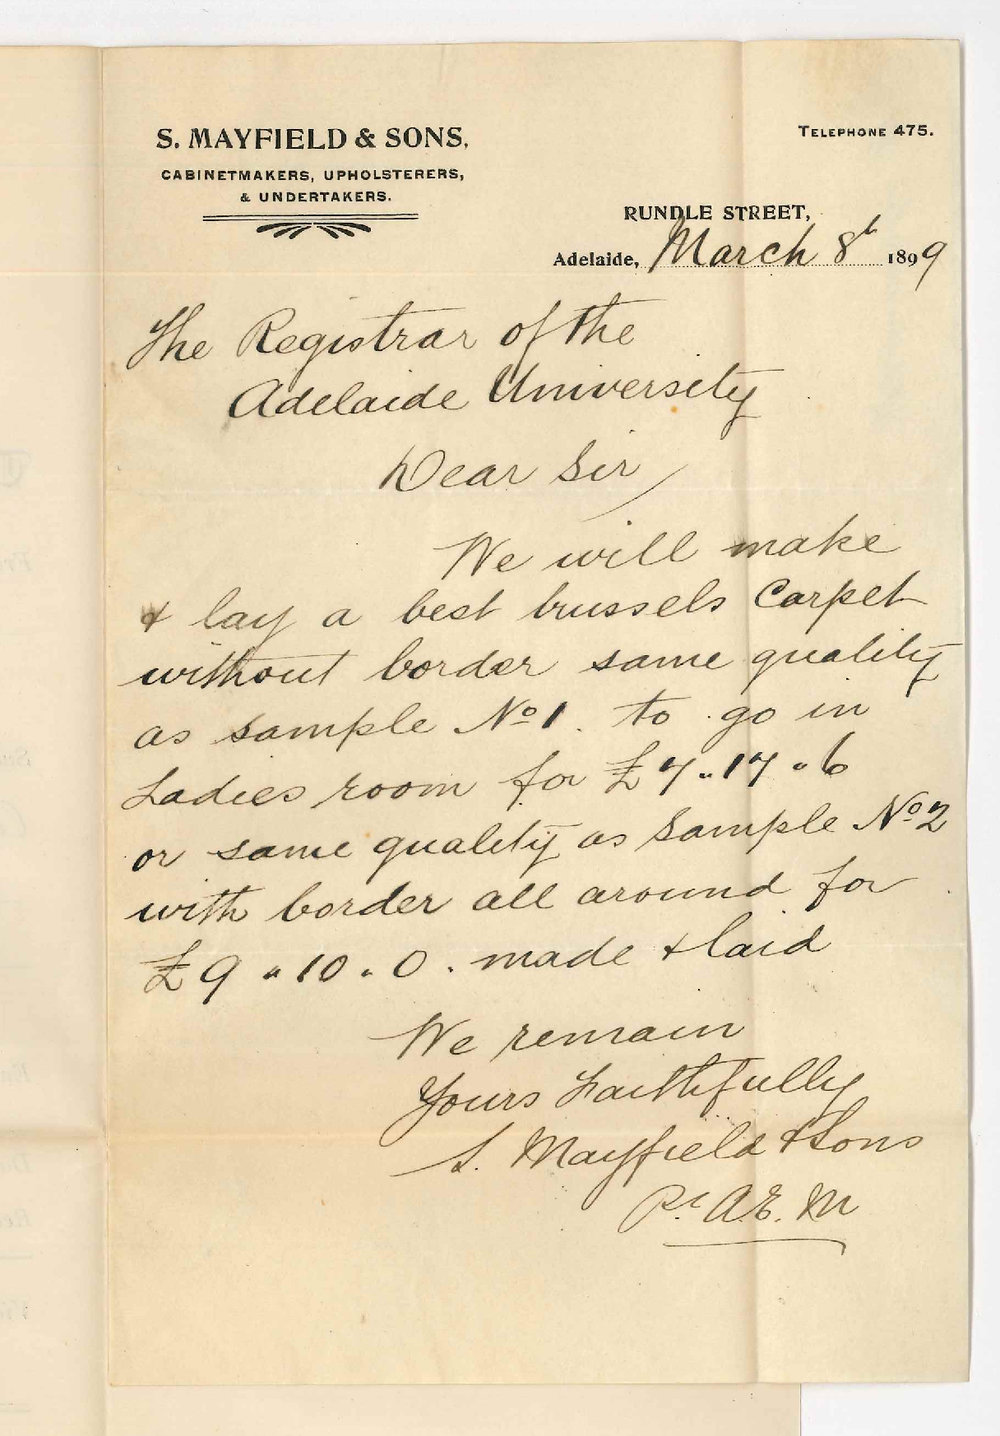 S. MAYFIELD & SONS,
CABINETMAKERS, UPHOLSTERERS,
& UNDERTAKERS.
TELEPHONE 475.
RUNDLE STREET,
Adelaide, March 8th 1899
The Registrar of the
Adelaide University
Dear Sir
We will make
& lay a best brussels Carpet
without border same quality
as sample No 1. to go in
Ladies room for £7.17.6
or same quality as sample No 2
with border all around for
£9.10.0. made & laid
We remain
Yours Faithfully
S. Mayfield & Sons
Pr A.E.M